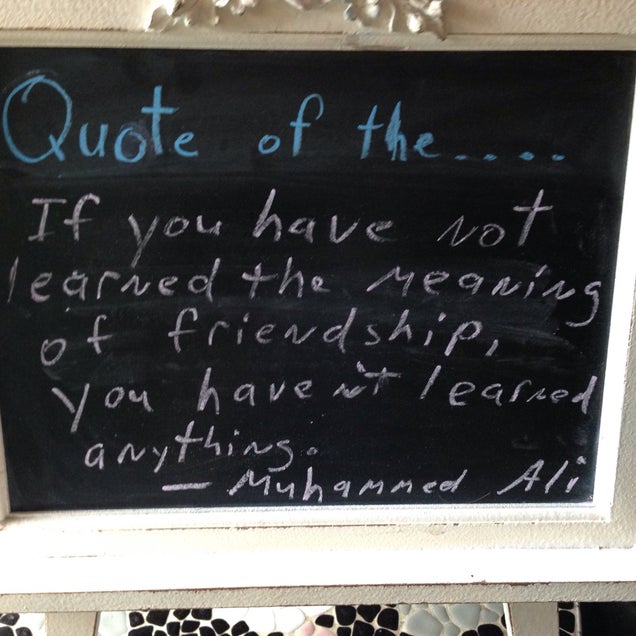 Quote of the....
If you have not
learned the meaning
of friendship,
you haven't learned
anything.
— Muhammed Ali